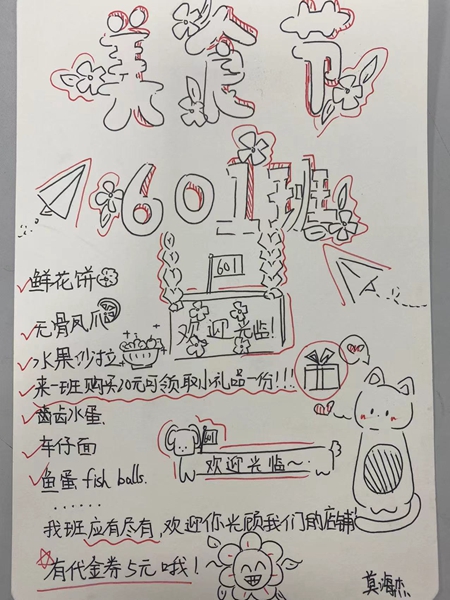 美食节
601班
601
欢迎光临!
鲜花饼
无骨凤爪
水果沙拉
来一班购买20元可领取小礼品一份!!!
水蛋
车仔面
601
欢迎光临~
鱼蛋 fish balls.
......
我班应有尽有,欢迎你光顾我们的店铺!
有代金券5元哦!
莫海杰